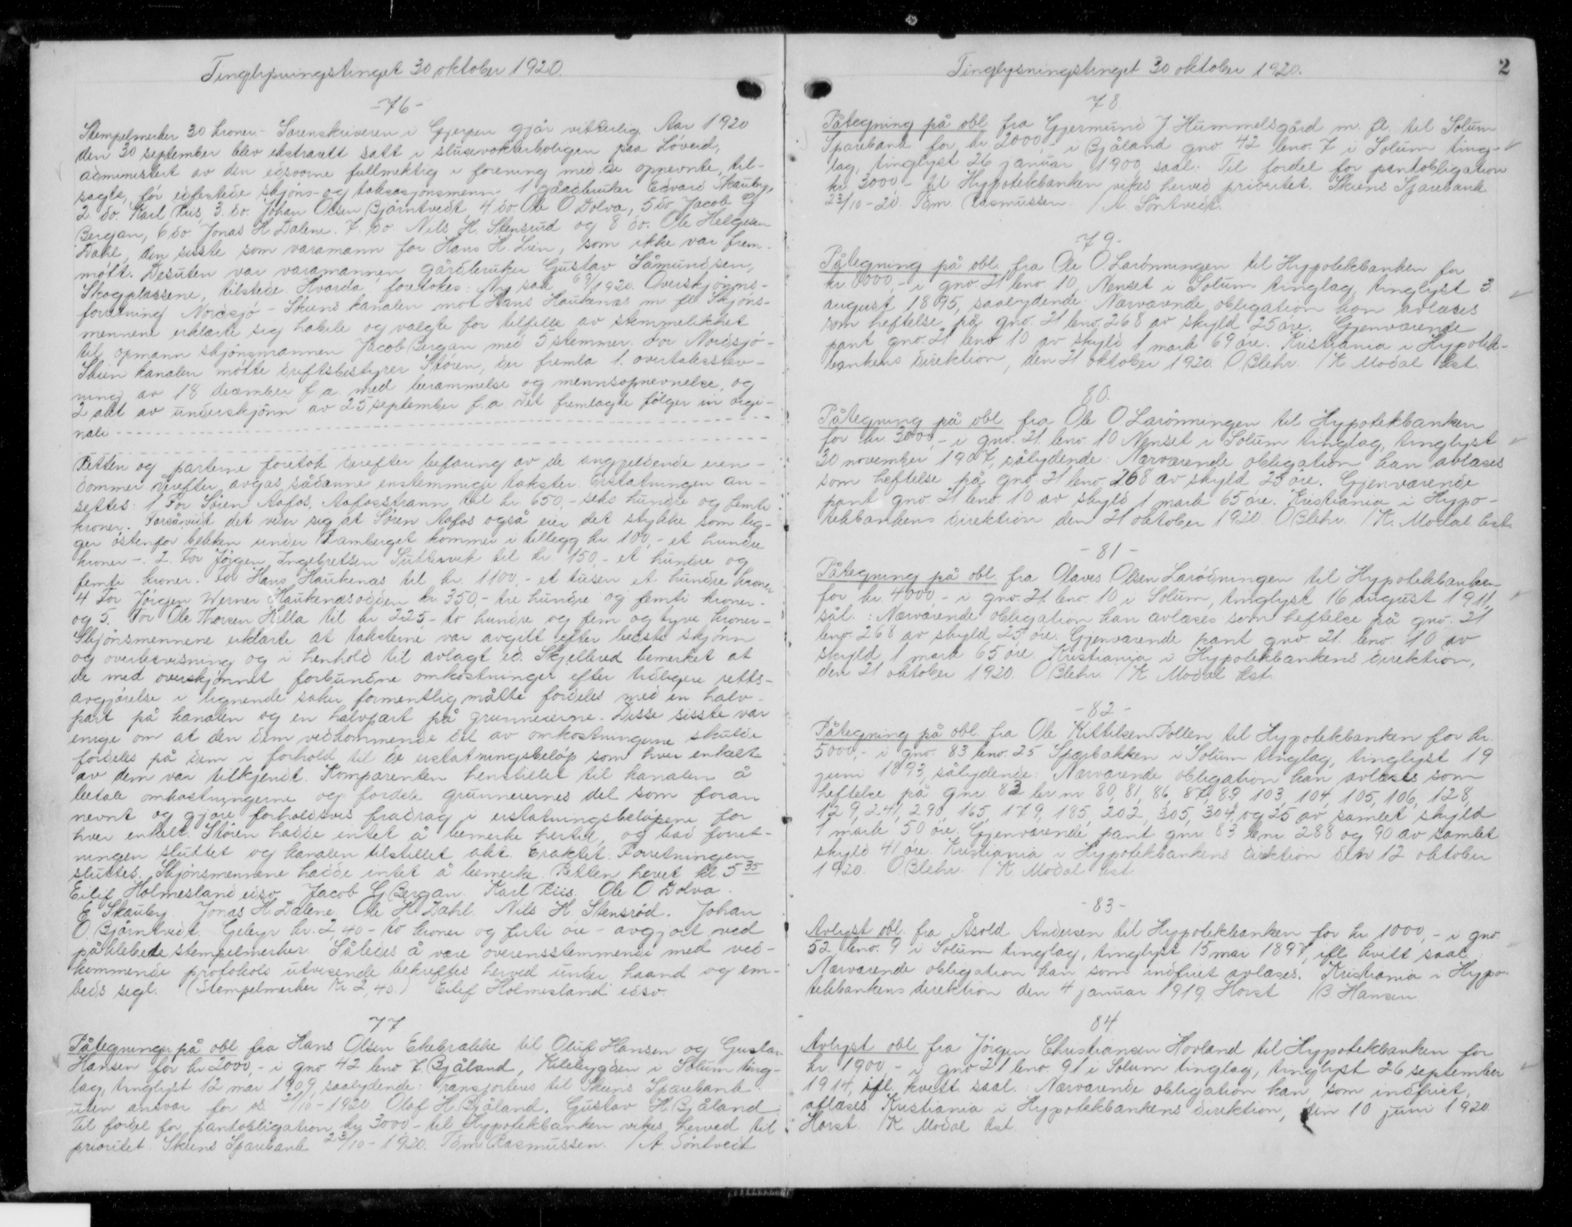 Tinglysningstinget 30 oktober 1920.
-76-
Stempelmerker 30 kroner - Sorenskriveren i Gjerpen gjør vitterlig Aar 1920
den 30 september blev ekstraett satt i slusevokterboligen paa Løveid,
administrert av den edsvorne fullmektig i forening med de opnevnte, til-
sagte, før edfestede skjøns- og taksasjonsmenn 1 gårdbruker Edvard Skauby,
2 do. Karl Riis, 3. do. Johan Olsen Bjårntvedt 4 do Ole O Dolva, 5 do Jacob G
Bergan, 6 do Jonas H Dalene. 7. do Nils H. Stensrud og 8 do. Ole Helgesen
Dahl, den sisste som varamann for Hans H. Lien, som ikke var frem-
møtt. Desuten var varamannen gårdbruker Gustav Såmundsen,
Skogplassene, tilstede Hvorda foretokes: Ny sak 1920. Overskjønns-
forretning Norsjø - Skiens kanalen mot Hans Haukenæs m fl. Skjøns-
mennene erklærte sig habile og valgte for tilfelle av stemmelikhet
til opmann skjønsmannen Jacob Bergan med 5 stemmer. For Nordsjø-
Skien kanalen møtte driftsbestyrer Støren, der fremla 1. overtakststev-
ning av 18 december f.a. med berammelse og mennsopnevnelse, og
2 akt av underskjønn av 25 september f.a. Det fremlagte følger in origi-
nali
Retten og parterne foretok derefter befaring av de angjeldende eien-
dommer hvorefter avgas sådanne enstemmige takster. Erstatningen an-
settes: 1 For Søren Aafos, Aafosstrann til kr 650,- seks hundre og femti
kroner. Forsåvidt det viser sig at Søren Aafos også eier det stykke som lig-
ger østenfor bekken under Ramberget kommer i tillegg kr. 100,- et hundre
kroner -. 2. For Jørgen Ingebretsen til kr. 150,- et hundre og
femti kroner. For Hans Haukenæs til kr. 1100,- et tusen et hundre kroner
4 For Jørgen Werner Haukenæsodden kr 350,- tre hundre og femti kroner-
og 5. For Ole Thoresen Killa til kr 225- to hundre og fem og tyve kroner-
Skjønsmennene erklærte at taksterne var avgitt efter beste skjønn
og overbevisning og i henhold til avlagt ed. Skjellbred bemerket at
de med overskjønnet forbundne omkostninger efter tidligere retts-
avgjørelse i lignende saker formentlig måtte fordeles med en halv-
part på kanalen og en halvpart på grunneierne. Disse sisste var
enige om at den dem vedkommende del av omkostningerne skulde
fordeles på dem i forhold til de erstatningsbeløp som hver enkelt
av dem var tilkjendt. Komparenten henstillet til kanalen å
betale omkostningerne og fordele grunneiernes del som foran
nevnt og gjøre forholdsvis fradrag i erstatningsbeløpene for
hver enkelt. Støren hadde intet å bemerke hertil, og bad forret-
ningen sluttet og kanalen tilstillet akt. Eraktet: Forretningen
sluttes. Skjønsmennene hadde intet å bemerke. Retten hevet kl. 5 35
Eilif Holmesland edsv. Jacob G Bergan. Karl Riis. Ole O Dolva.
E Skauby Jonas H Dalene Ole H Dahl. Nils H. Stensrød. Johan
O Bjårntvedt. Gebyr kr. 2,40 - to kroner og firti øre - avgjort ved
påklebede stempelmerker. Således å være overensstemmende med ved-
kommende protokols utvisende bekreftes herved under haand og em-
beds segl. (Stempelmerker Kr 2,40.) Eilif Holmesland edsv.
77
Påtegninger på obl. fra Hans Olsen Ekebrække til Oluf Hansen og Gustav
Hansen for kr 2000,- i gno 42 bno 7 Bjåland, Kilebygden i Solum ting-
lag, tinglyst 12 mar 1909, saalydende: Transporteres til Skiens Sparebank
uten ansvar for os 21/10-1920 Olaf H Bjåland. Gustav H Bjåland
Til fordel for pantobligation kr 3000,- til Hypotekbanken vikes herved til
prioritet. Skiens Sparebank 23/10-1920. Tom Rasmussen. / A. Søntvedt
Tinglysningstinget 30 oktober 1920.
2
78
Påtegning på obl. fra Gjermund J Hummelsgård m. fl. til Solum
Sparebank for kr 2000,- i Bjåland gno 42 bno. 7 i Solum ting-
lag, tinglyst 26 januar 1900, saal: Til fordel for pantobligation
kr 3000,- til Hypotekbanken vikes herved prioritet. Skiens Sparebank
23/10-20 Tom Rasmussen / A. Søntvedt.
79.
Påtegning på obl. fra Ole O Larønningen til Hypotekbanken for
kr 8000,- i gno 21 bno 10, Nenset i Solum tinglag, tinglyst 3
august 1895, saalydende: Nærværende obligation kan avlæses
som heftelse på gno. 21 bno. 268 av skyld 25 øre. Gjenværende
pant gno 21 bno 10 av skyld 1 mark 69 øre. Kristiania i Hypotek-
bankens direktion, den 21 oktober 1920. O Blehr. / K Modal Cst.
80.
Påtegning på obl. fra Ole O Larønningen til Hypotekbanken
for kr 3000,- i gno. 21 bno 10 Nenset i Solum tinglag, tinglyst
30 november 1907, sålydende: Nærværende obligation kan avlæses
som heftelse på gno 21 bno 268 av skyld 25 øre. Gjenværende
pant gno 21 bno 10 av skyld 1 mark 65 øre. Kristiania i Hypo-
tekbankens direktion den 21 oktober 1920. O Blehr. / K. Modal Cst.
-81-
Påtegning på obl. fra Olaves Olsen Larønningen til Hypotekbanken
for kr. 4000 - i gno. 21 bno 10 i Solum, tinglyst 16 august 1911,
sål.: Nærværende obligation kan avlæses som heftelse på gno. 21
bno. 268 av skyld 25 øre. Gjenværende pant gno 21. bno. 10 av
skyld 1 mark 65 øre Kristiania i Hypotekbankens direktion,
den 21 oktober 1920. O Blehr / K Modal Cst.
-82-
Påtegning på obl. fra Ole Kittilsen Pollen til Hypotekbanken for kr.
5000,- i gno. 83 bno. 25 Spæjbakken i Solum tinglag, tinglyst 19
juni 1893, sålydende: Nærværende obligation kan avlæses som
heftelse på gnr 83 br nr 80, 81, 86, 87 89 103, 104, 105, 106, 128,
129, 241, 290, 165, 179, 185, 202, 305, 304, og 25 av samlet skyld
1 mark 50 øre. Gjenværende pant gnr 83 bnr 288 og 90 av samlet
skyld 41 øre. Kristiania i Hypotekbankens direktion den 12 oktober
1920. O Blehr. / K Modal Cst.
-83-
Avlyst obl. fra Åsold Andersen til Hypotekbanken for kr 1000,- i gno
52 bno. 9 i Solum tinglag, tinglyst 15 mar 1897, ifl. kvitt saal:
Nærværende obligation kan som indfriet avlæses. Kristiania i Hypo-
tekbankens direktion den 4 januar 1919 Horst / B Hansen
84
Avlyst obl. fra Jørgen Christiansen Hovland til Hypotekbanken for
kr 1900 - i gno 21 bno. 91 i Solum tinglag, tinglyst 26 september
1914, ifl. kvitt saal.: Nærværende obligation kan, som indfriet,
aflæses Kristiania i Hypotekbankens direktion, den 10 juni 1920
Horst. / K Modal Cst.